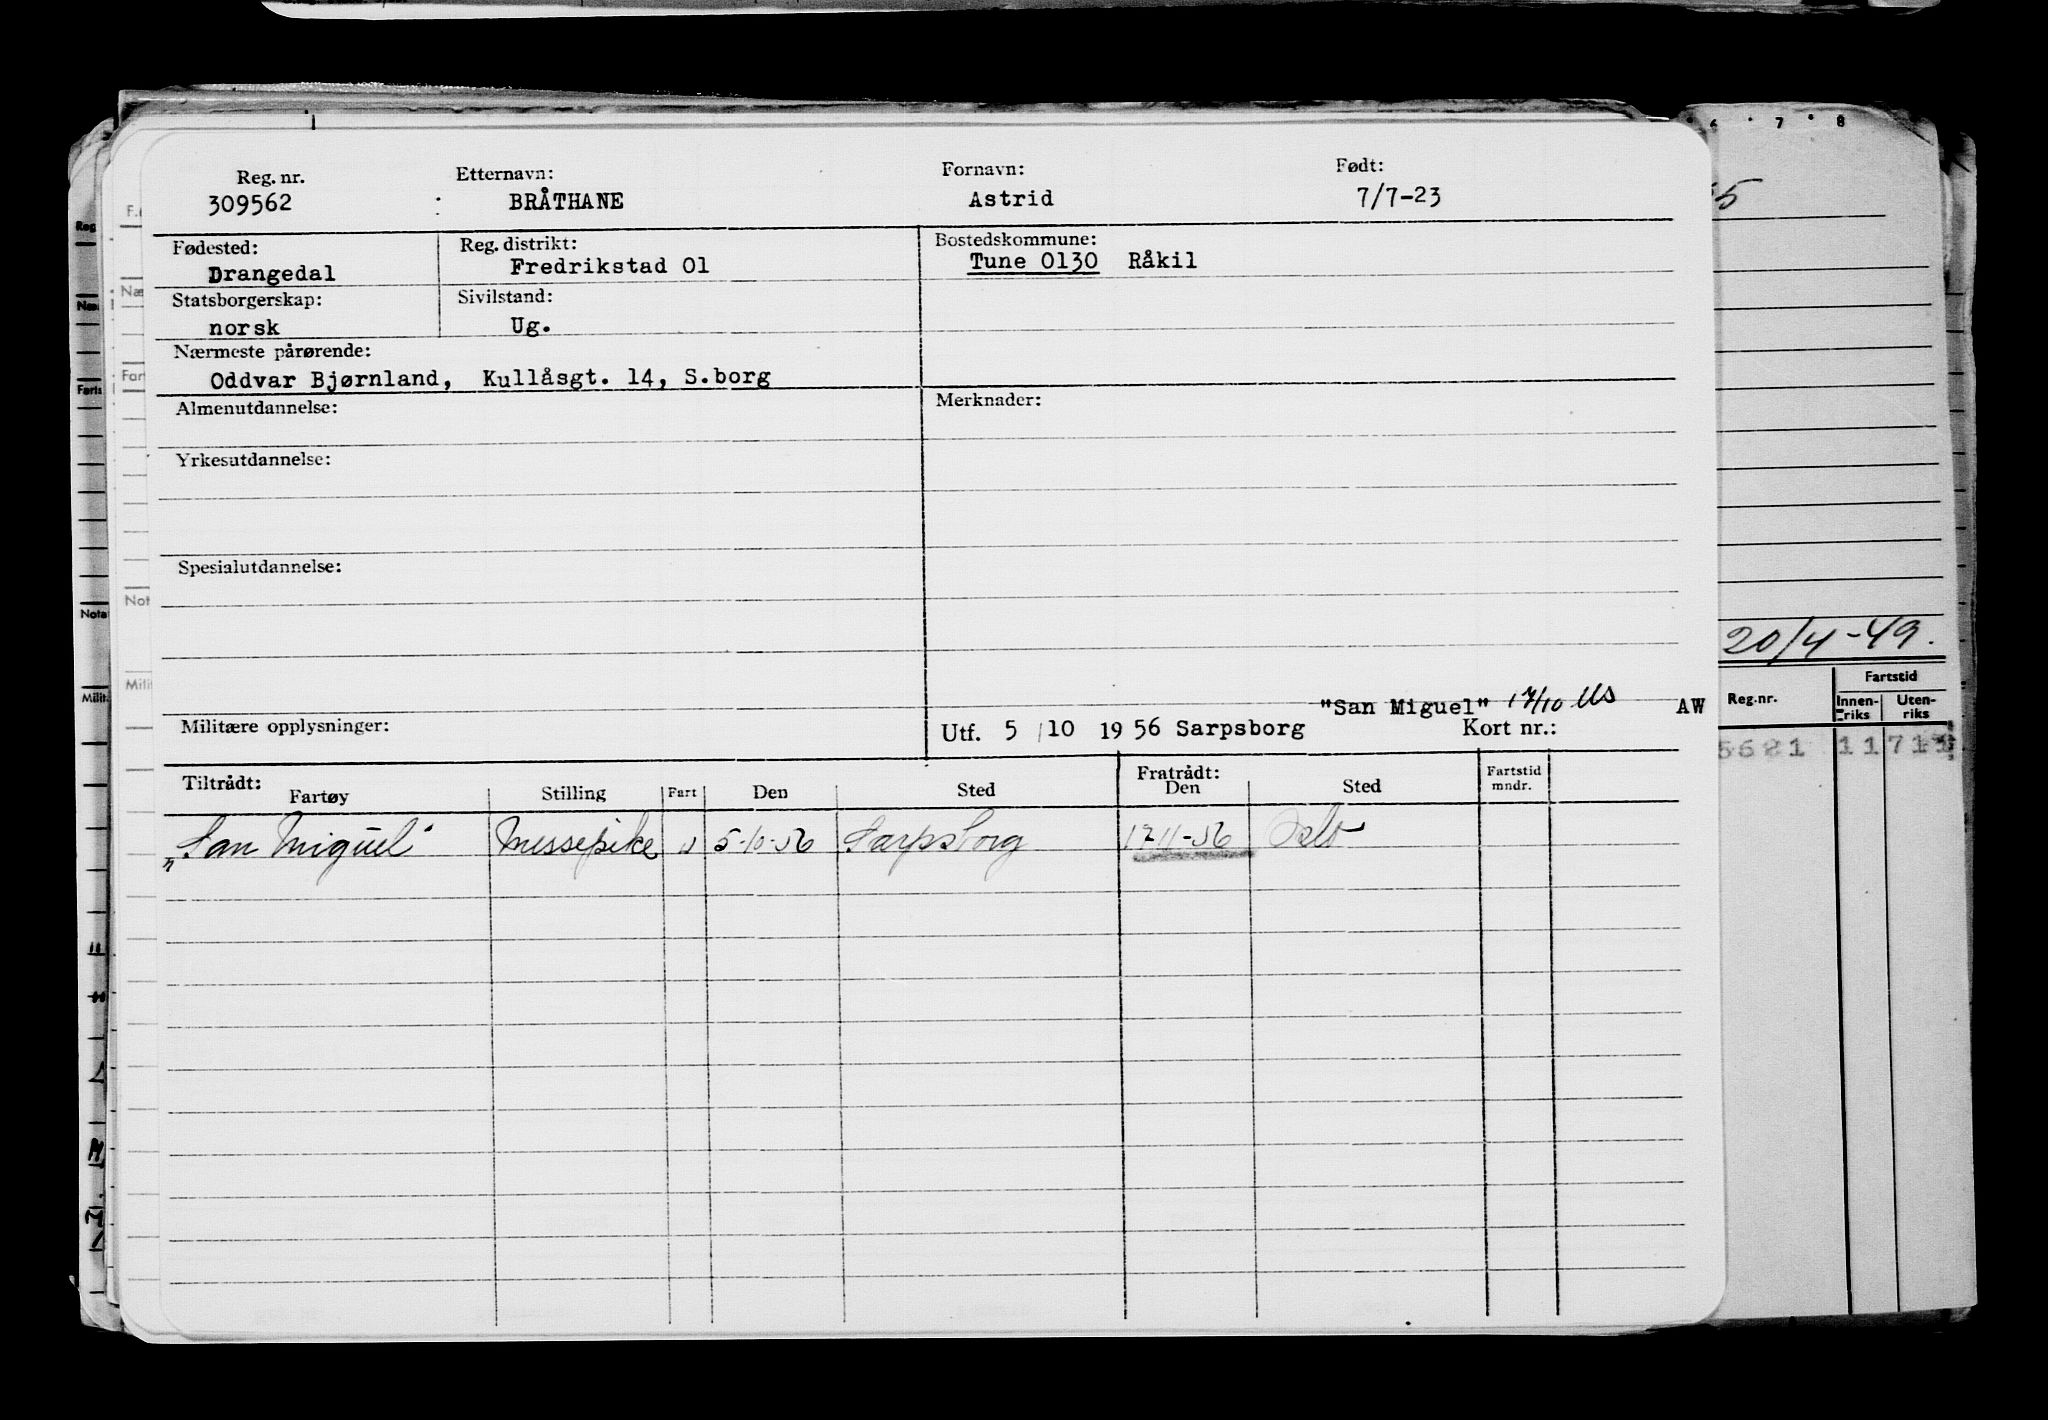 Reg. nr. Etternavn: Fornavn: Født:
309562 : BRÅTHANE Astrid 7/7-23
Fødested: Reg. distrikt: Bostedskommune:
Drangedal Fredrikstad 01 Tune 0130 Råkil
Statsborgerskap: Sivilstand:
norsk Ug.
Nærmeste pårørende:
Oddvar Bjørnland, Kullåsgt. 14, S.borg
Almenutdannelse: Merknader:
Yrkesutdannelse:
Spesialutdannelse:
"San Miguel" 17/10 AW
Militære opplysninger: Utf. 5/10 1956 Sarpsborg Kort nr.:
Tiltrådt: Fratrådt:
Fartøy Stilling Fart Den Sted Den Sted Fartstid mndr.
„San Miguel" Messepike U 5-10-56 Sarpsborg 1711-56 Oslo
6 7 8
20/4-49.
Fartstid
Reg.nr. Innen-riks Uten-riks
5621 11 711
Reg
Næ
Not
Nota
Milit